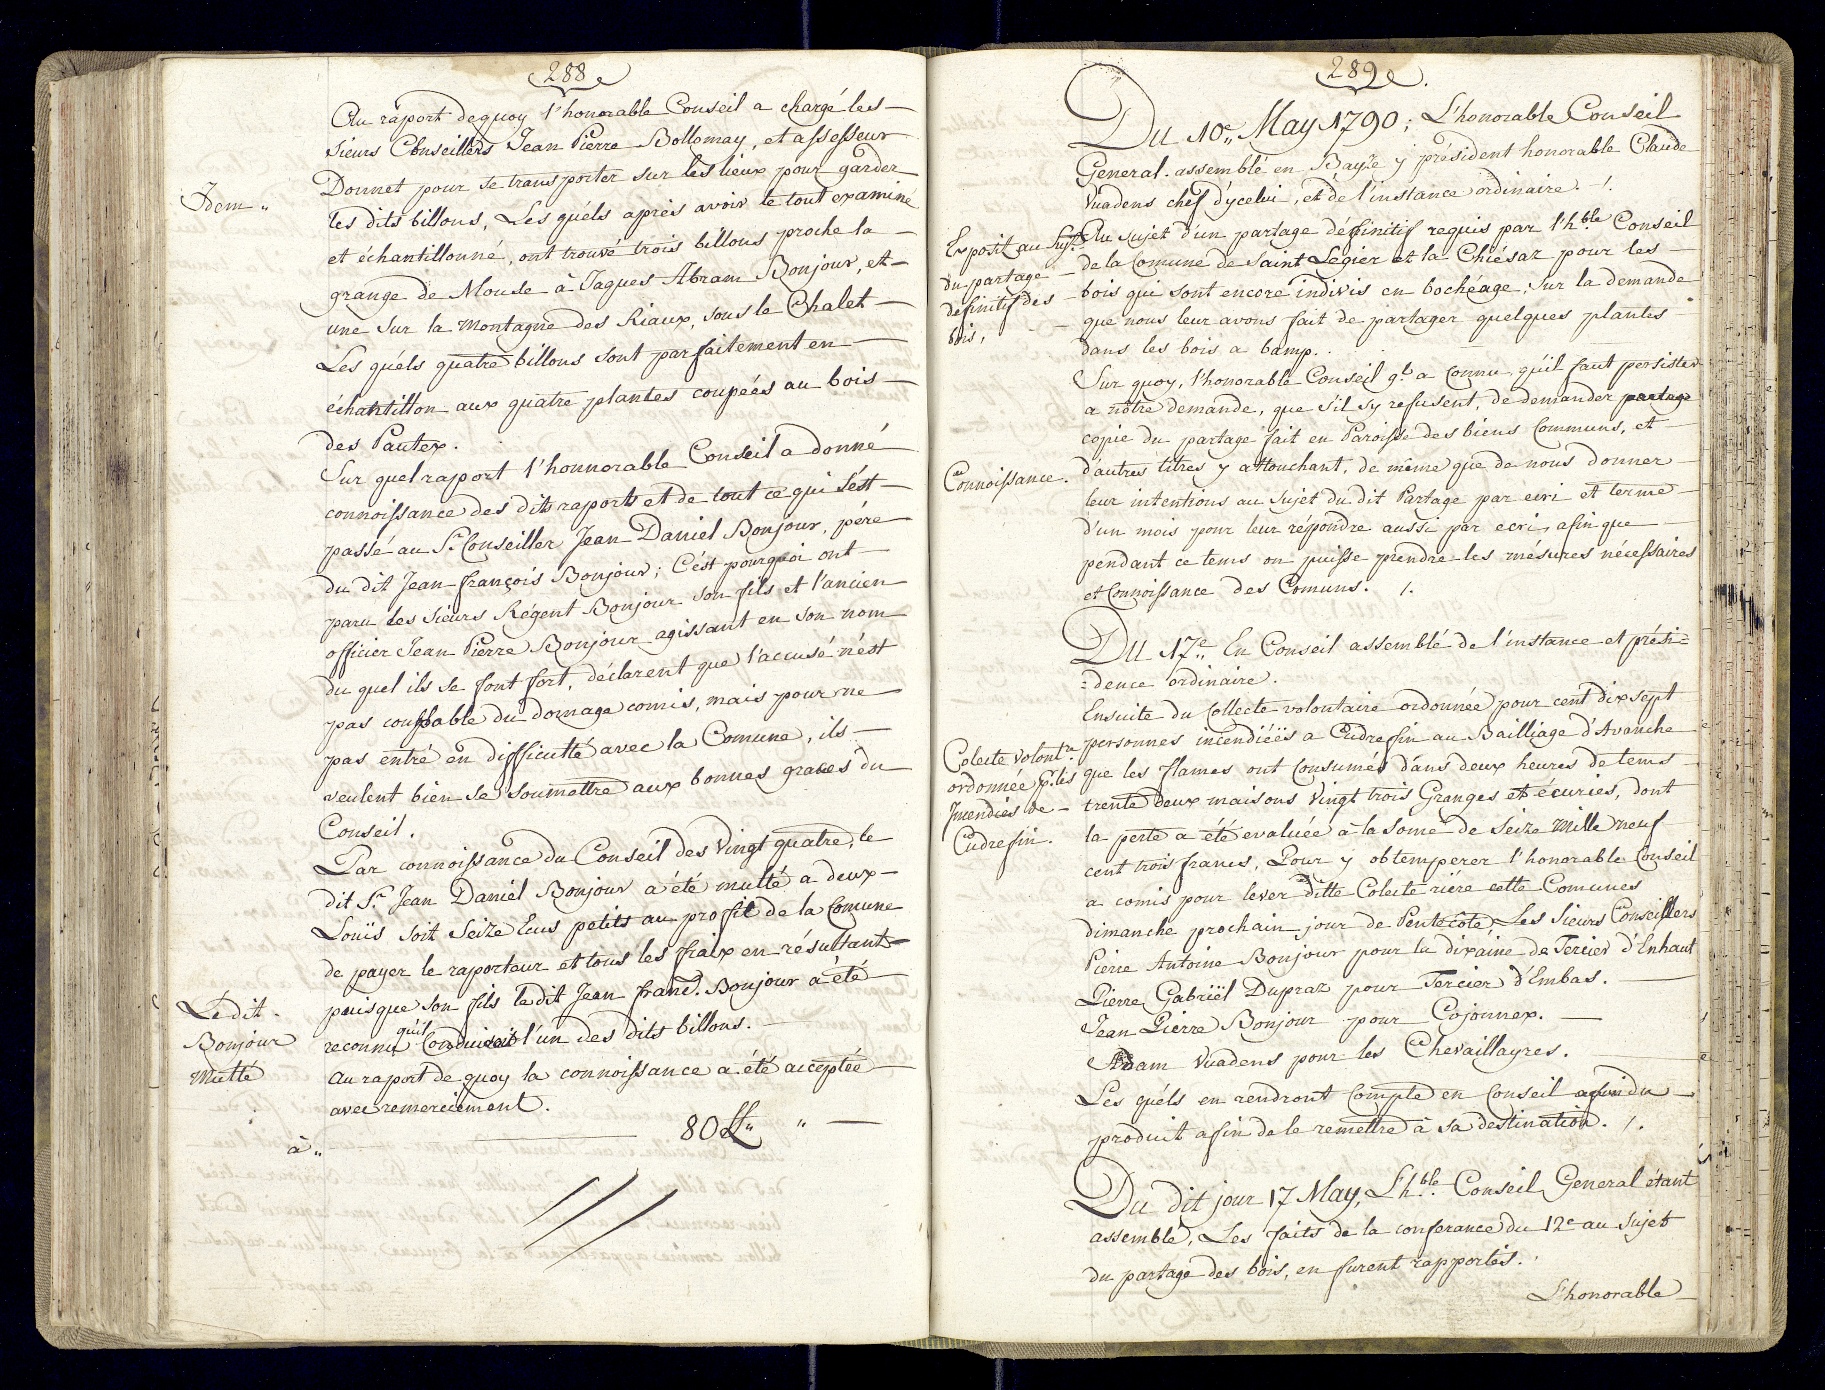 288
Au raport dequoy l'honorable Conseil a chargé les
Sieurs Conseillers Jean Pierre Bollomay, et assesseur
Donnet pour se transporter sur les lieux pour garder
Idem "
les dits billons, Les quéls après avoir le tout examiné
et échantillonné, ont trouvé trois billons proche la
grange de Moude à Jaques Abram Bonjour, et
une sur la montagne des Riaux, sous le Chalet
Les quéls quatre billons sont parfaitement en
échantillon aux quatre plantes coupées au bois
des Pautex.
Sur quel raport l'honnorable Conseil a donné
connoissance des dits raports et de tout ce qui s'ést
passé au Sr. Conseiller Jean Daniel Bonjour, pére
du dit Jean françois Bonjour; C'ést pourquoi ont
paru les Sieurs Régent Bonjour son fils et l'ancien
officier Jean Pierre Bonjour agissant en son nom
du quel ils se font fort, déclarent que l'accusé n'ést
pas coupable du domage comis, mais pour ne
pas entré en difficulté avec la Comune, ils
veulent bien se soumettre aux bonnes graces du
Conseil.
Par connoissance du Conseil des Vingt quatre, le
dit Sr. Jean Daniel Bonjour a été multé a deux
Louïs soit Seize Ecus petits au profit de la Comune
de payer le raporteur et tous les fraix en résultant
puisque son fils le dit Jean franç. Bonjour a été
Le dit
Bonjour
Multé
reconnu qu'il Conduisoit l'un des dits billons.
Au raport de quoy la connoissance a été acceptée
avec remerciement.
à "
80 ff " "
289
Du 10e. May 1790; L'honorable Conseil
General assemblé en Bayse y président honorable Claude
Vuadens chef d'ycelui, et de l'instance ordinaire. /.
Exposit au Sujt.
du partage
définitif des
bois,
Au sujet d'un partage définitif requis par l'hble. Conseil
de la Comune de Saint Légier et la Chiésaz pour les
bois qui sont encore indivis en bochéage, Sur la demande
que nous leur avons fait de partager quelques plantes
dans les bois a bamp.
Sur quoy, l'honorable Conseil gl. a Connu qu'il faut persister
a nôtre demande, que s'il s'y refusent, de demander partage
copie du partage fait en Paroisse des biens Communs, et
Connoissance.
d'autres titres y attouchant, de même que de nous donner
leur intentions au sujet du dit Partage par ecri et terme
d'un mois pour leur répondre aussi par ecri, afin que
pendant ce tems on puisse prendre les mésures nécessaires
et Connoissance des Comuns. /.
Du 17e. En Conseil assemblé de l'instance et prési=
=dence ordinaire.
Ensuite du Collecte volontaire ordonnée pour cent dix sept
Colecte volontre.
ordonnée p. les
Incendiés de
Cudrefin.
personnes incendiéés a Cudrefin au Bailliage d'Avanche
que les flames ont Consumés dans deux heures de tems
trente deux maisons Vingt trois Granges et écuries, dont
la perte a été evaluée à la some de Seize Mille neuf
cent trois francs, Pour y obtemperer l'honorable Conseil
a comis pour lever ditte Colecte riére cette Comunes
dimanche prochain jour de Pentecôte Les Sieurs Conseillers
Pierre Antoine Bonjour pour la dixaine de Tercier d'Enhaut
Pierre Gabriël Dupraz pour Tercier d'Embas.
Jean Pierre Bonjour pour Cojonnex.
Adam Vuadens pour les Chevaillayres.
Les quéls en rendront Compte en Conseil du
produit afin de le remettre à sa destination. /.
Du dit jour 17 May, L'hble. Conseil General étant
assemblé, Les faits de la conferance du 12e au Sujet
du partage des bois, en furent rapportés.
L'honorable